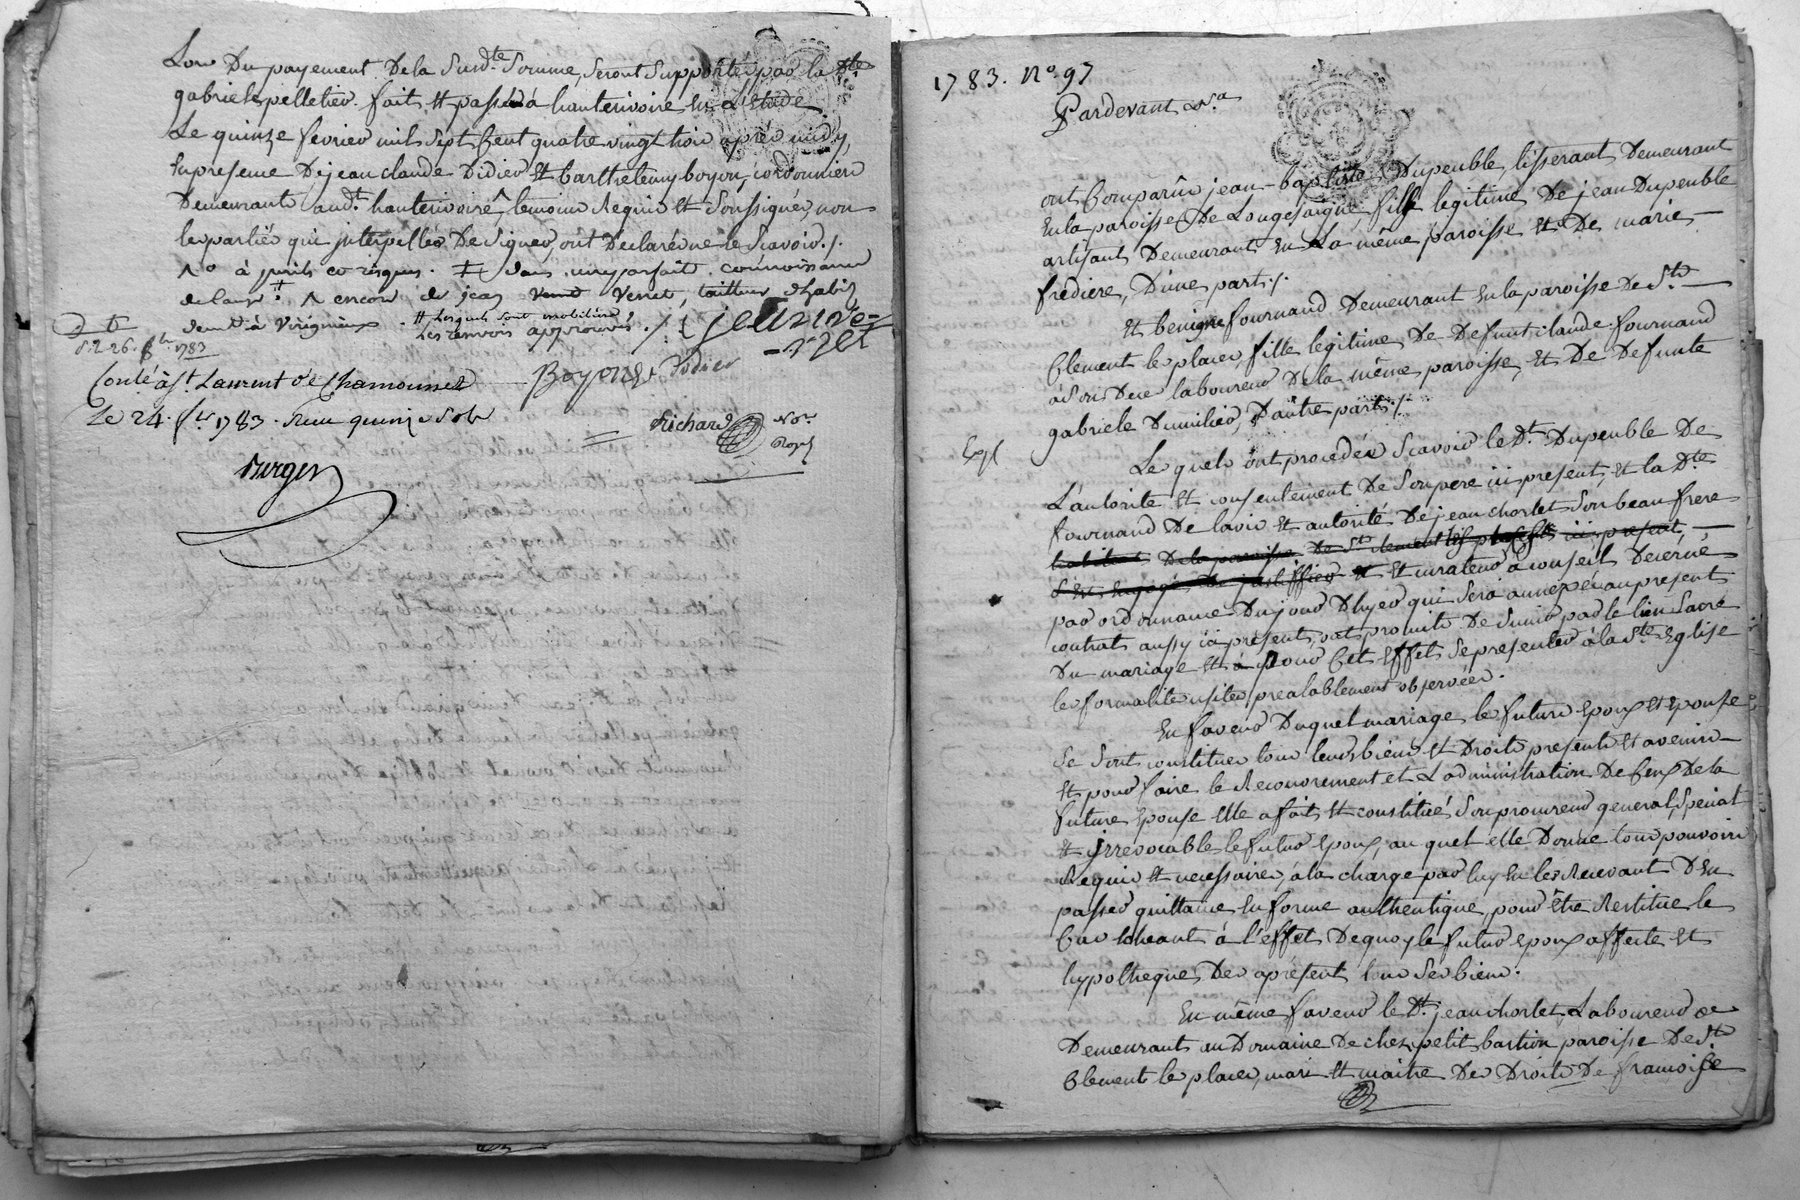 Lors Du payement De la Susdte Somme, seront Supportés par la Dte
gabriele pelletier. fait Et passé à hauterivoire En L'Etude
Le quinze fevrier mil Sept Cent quatre vingt trois après midy,
En presence De jean claude Didier Et barthelemy boyon, cordonnier
Demeurant audt. hauterivoire temoins Requis Et Soussignés, non
les parties qui interpellés De Signer, ont Declaré ne le Scavoir./.
à perils et risques. ‡ dans une parfaite connoissance
encore de jean Verret, tailleur d'habits
demt à virigneux. # lesquels sont mobiliers
Les renvois approuvés ./.
jean ve-
-rret
Dt
d. 2 26. fbr. 1783
Boyon Didier
Conlé à St. Laurent de Chamousset
Le 24. fer 1783. Reçu quinze sols
Richard Nore
Royl
Durger
1783. No. 97
Pardevant &a
ont Comparûs jean-baptiste Dupeuble, tisserant, Demeurant
En la paroisse De Longesaigne, fils legitime De jean Dupeuble
artisant Demeurant En La même paroisse Et De marie
fredière, D'une part./.
Et benigne fournand Demeurant En la paroisse De St.
Clement les places, fille legitime De Defunt claude fournand
à Son Dece laboureur De la même paroisse, Et De Defunte
gabriele Dumilier, D'autre part./.
Expl
Le quels ont procédés Scavoir le Dt. Dupeuble De
L'autorité Et consentement De Son pere ici present, Et la Dte
fournand De l'avis Et autorité De jean chorlet Son beau frere
habitant De la paroisse De St clement les places ici present,
Et curateur à conseil Decerné
par ordonnance Du jour D'hyer qui Sera annexée au present
contrat aussy ici present, ont promis De S'unir par le lien Sacré
Du mariage Et à pour Cet Effet Se presenter à la Ste Eglise
les formalités usitées prealablement observées.
En faveur Duquel mariage, les futurs Epoux Et Epouse
Se Sont constitués tous leurs biens Et Droits presents Et avenirs
Et pour faire le Recouvrement et L'administration De Ceux De la
future Epouse Elle a fait Et constitué Son procureur general, Special
Et jrrevocable le futur Epoux, auquel elle Donne tous pouvoirs
Requis Et necessaires, à la charge par luy En les Recevant D'En
passer quittance En forme authentique, pour être Restitués le
Cas Echeant à l'effet De quoy le futur Epoux affecte Et
hypotheque Des apresent tous Ses biens.
En même faveur le Dt. jean chorlet, Laboureur
Demeurant au Domaine De chez petit bastion paroisse De St.
Clement les places, mari Et maitre Des Droits De francoise